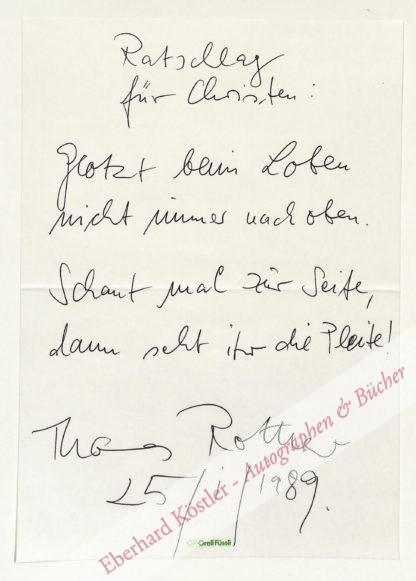 Ratschlag
für Christen:
Glotzt beim Loben
nicht immer nach oben.
Schaut mal zur Seite,
dann seht ihr die Pleite!
Thomas Rother
25/1/1989.
Eberhard Köstler - Autographen & Bücher
OF Orell Füssli